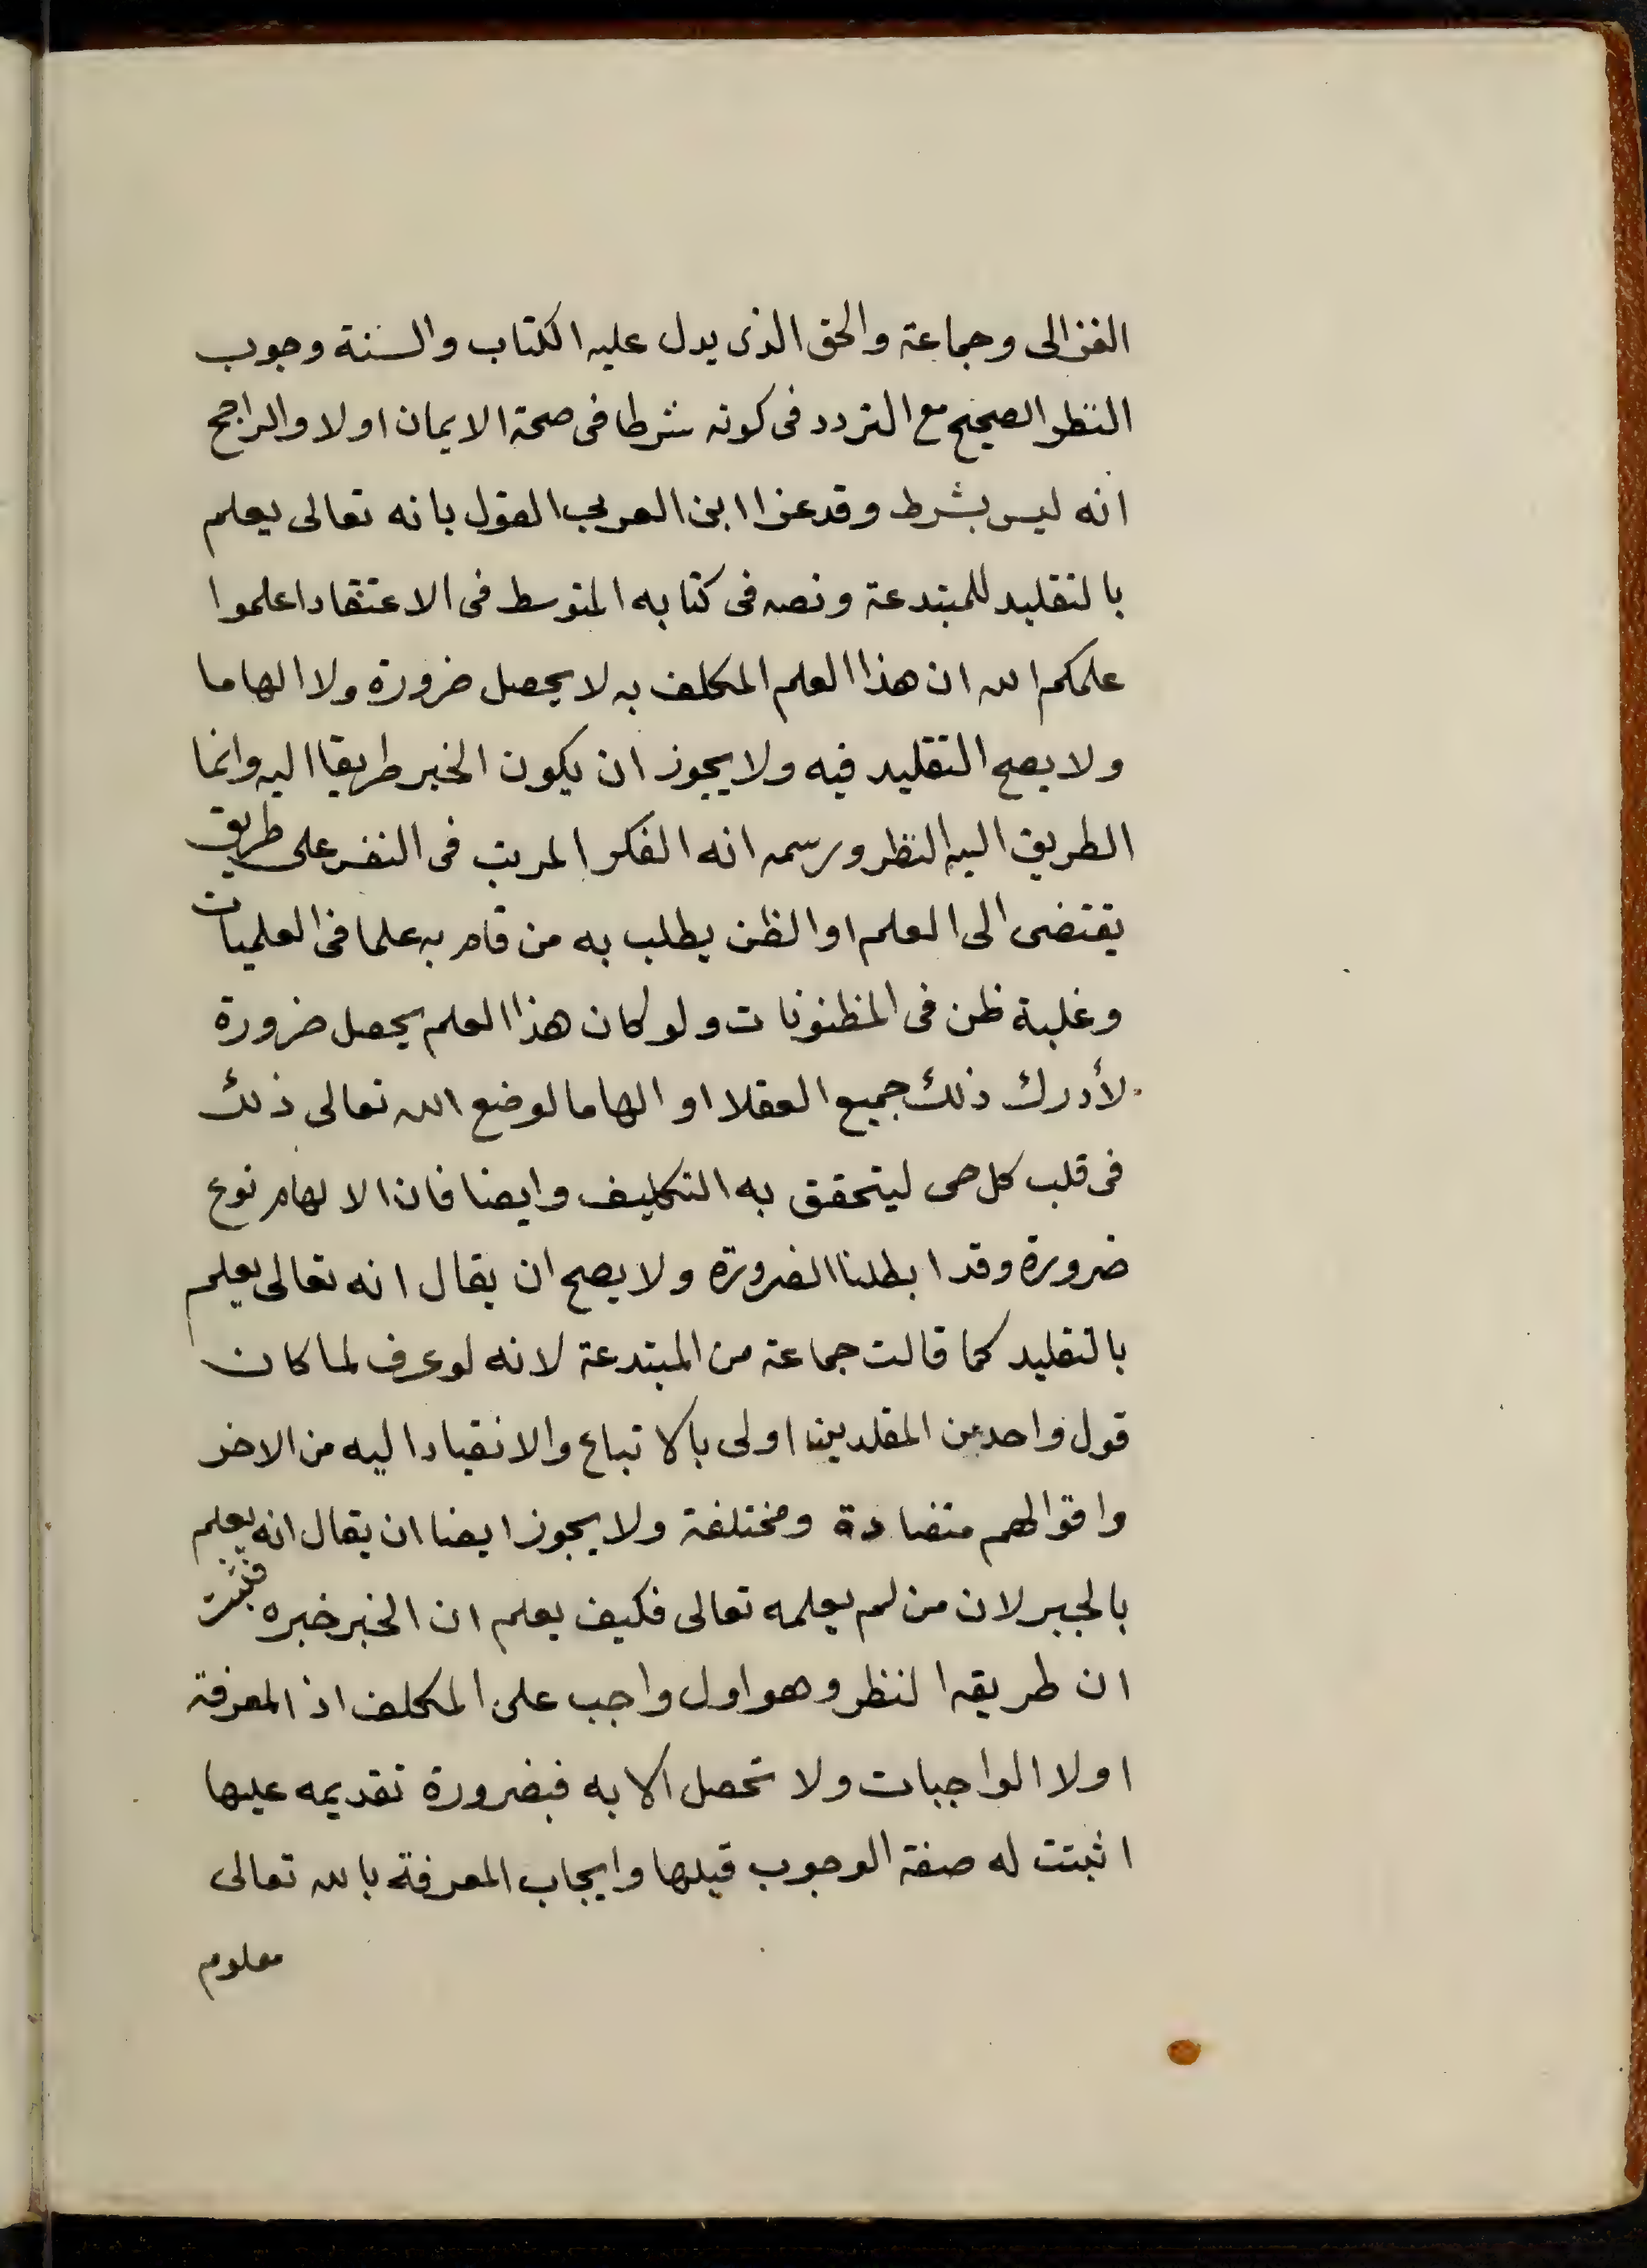 الغزالى وجماعة والحق الذى يدل عليه الكتاب والسنة وجوب
النظر الصحيح مع التردد فى كونه شرطا فى صحة الايمان اولا والراجح
انه ليس بشرط وقد عزا ابن العربى القول بانه تعالى يعلم
بالتقليد للمبتدعة ونصه فى كتابه المتوسط فى الاعتقاد اعلموا
علمكم الله ان هذا العلم المكلف به لا يحصل ضرورة ولا الهاما
ولا يصح التقليد فيه ولا يجوز ان يكون الخبر طريقا اليه وانما
الطريق اليه النظر ورسمه انه الفكر المرتب فى النفس على طريق
يقتضى الى العلم او الظن يطلب به من قام به علما فى العلميات
وغلبة ظن فى المظنونات ولو كان هذا العلم يحصل ضرورة
لأدرك ذلك جميع العقلا او الهاما لوضع الله تعالى ذلك
فى قلب كل حى ليتحقق به التكليف وايضا فان الالهام نوع
ضرورة وقد ابطلنا الضرورة ولا يصح ان يقال انه تعالى يعلم
بالتقليد كما قالت جماعة من المبتدعة لانه لو عرف لما كان
قول واحد من المقلدين اولى بالاتباع والانقياد اليه من الاخر
واقوالهم متضادة ومختلفة ولا يجوز ايضا ان يقال انه يعلم
بالخبر لان من لم يعلمه تعالى فكيف يعلم ان الخبر خبره فثبت
ان طريقه النظر وهو اول واجب على المكلف اذ المعرفة
اولا الواجبات ولا تحصل الا به فبضرورة تقديمه عليها
اثبتت له صفة الوجوب قبلها وايجاب المعرفة بالله تعالى
معلوم